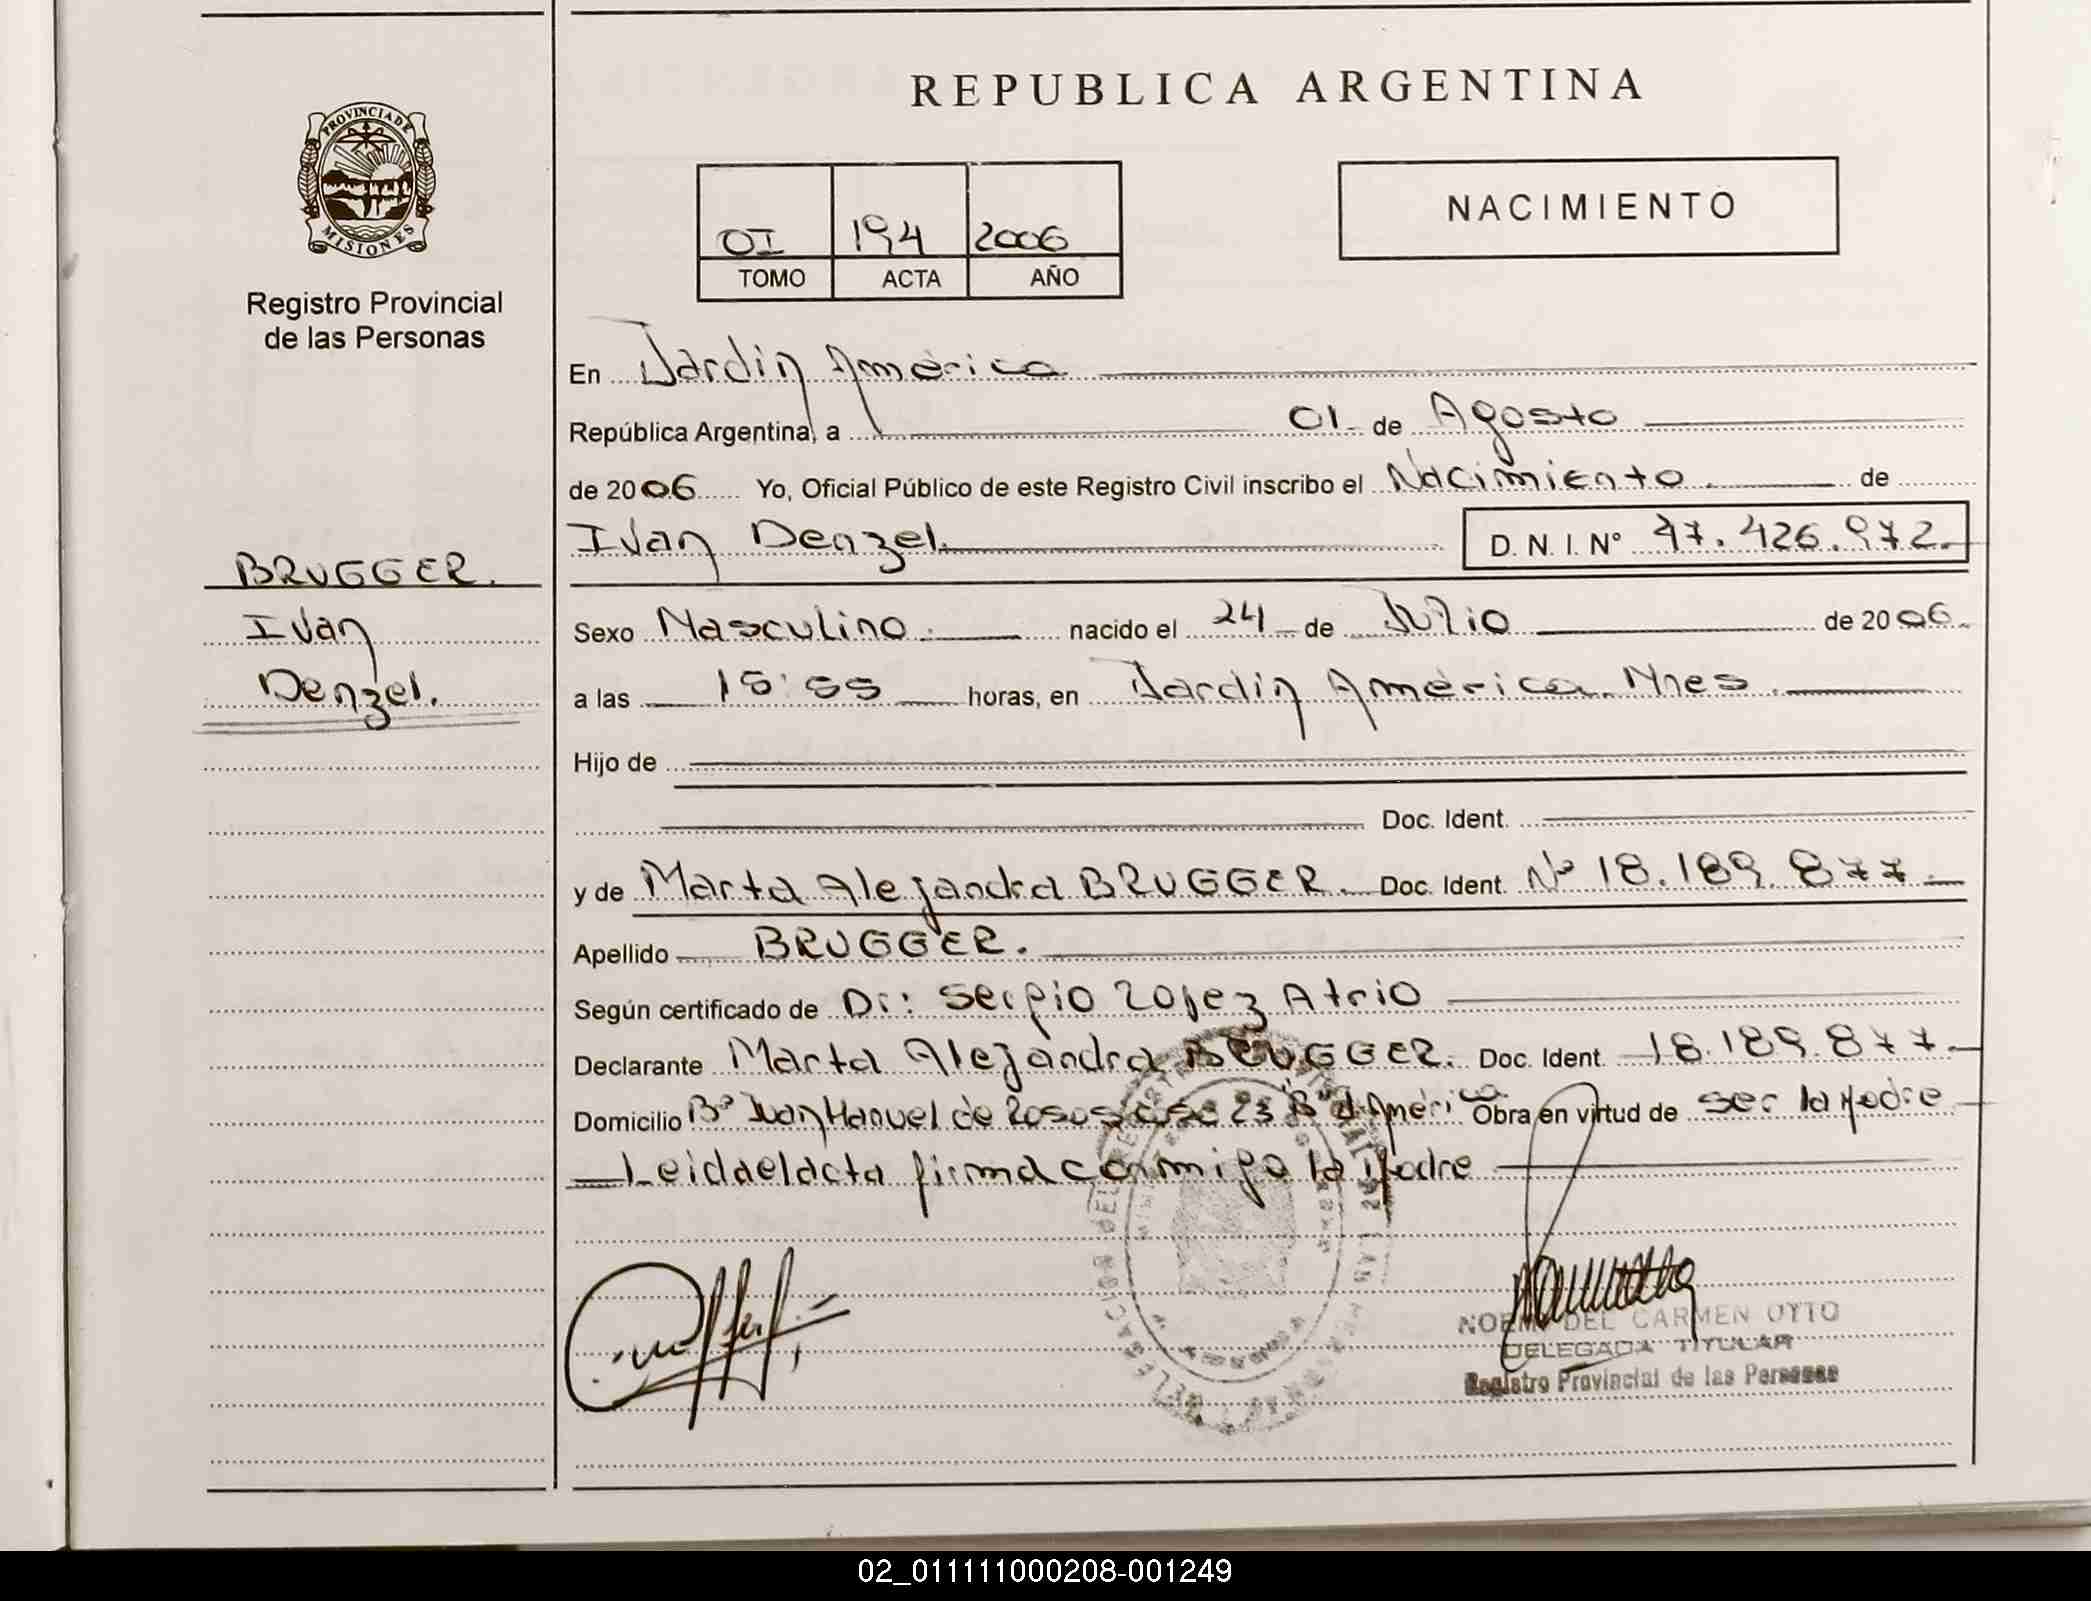 REPUBLICA ARGENTINA
PROVINCIA DE
MISIONES
Registro Provincial
de las Personas
OI 194 2006
TOMO ACTA AÑO
NACIMIENTO
En Jardin América
República Argentina, a 01 de Agosto
de 2006 Yo, Oficial Público de este Registro Civil inscribo el Nacimiento de
Ivan Denzel. D. N. I. Nº 47.426.972.
BRUGGER.
Ivan
Denzel.
Sexo Masculino. nacido el 24 de Julio de 2006.
a las 15:55 horas, en Jardin América. Mnes.
Hijo de
Doc. Ident.
y de Marta Alejandra BRUGGER. Doc. Ident. Nº 18.189.877.
Apellido BRUGGER.
Según certificado de Dr: Sergio Lopez Atrio
Declarante Marta Alejandra BRUGGER. Doc. Ident. 18.189.877
Domicilio Bº Juan Manuel de Rosas casa 23 J. América Obra en virtud de ser la Madre
Leida el acta firma conmigo la Madre
NOEMI DEL CARMEN OTTO
DELEGADA TITULAR
Registro Provincial de las Personas
02_011111000208-001249